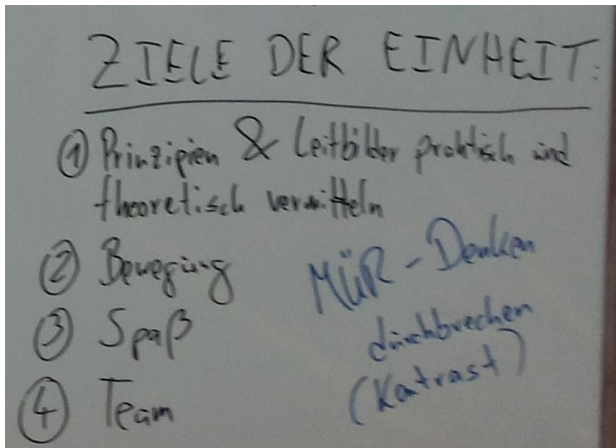 ZIELE DER EINHEIT:
① Prinzipien & Leitbilder praktisch und
theoretisch vermitteln
② Bewegung
③ Spaß
④ Team
MÜR-Denken
durchbrechen
(Kontrast)